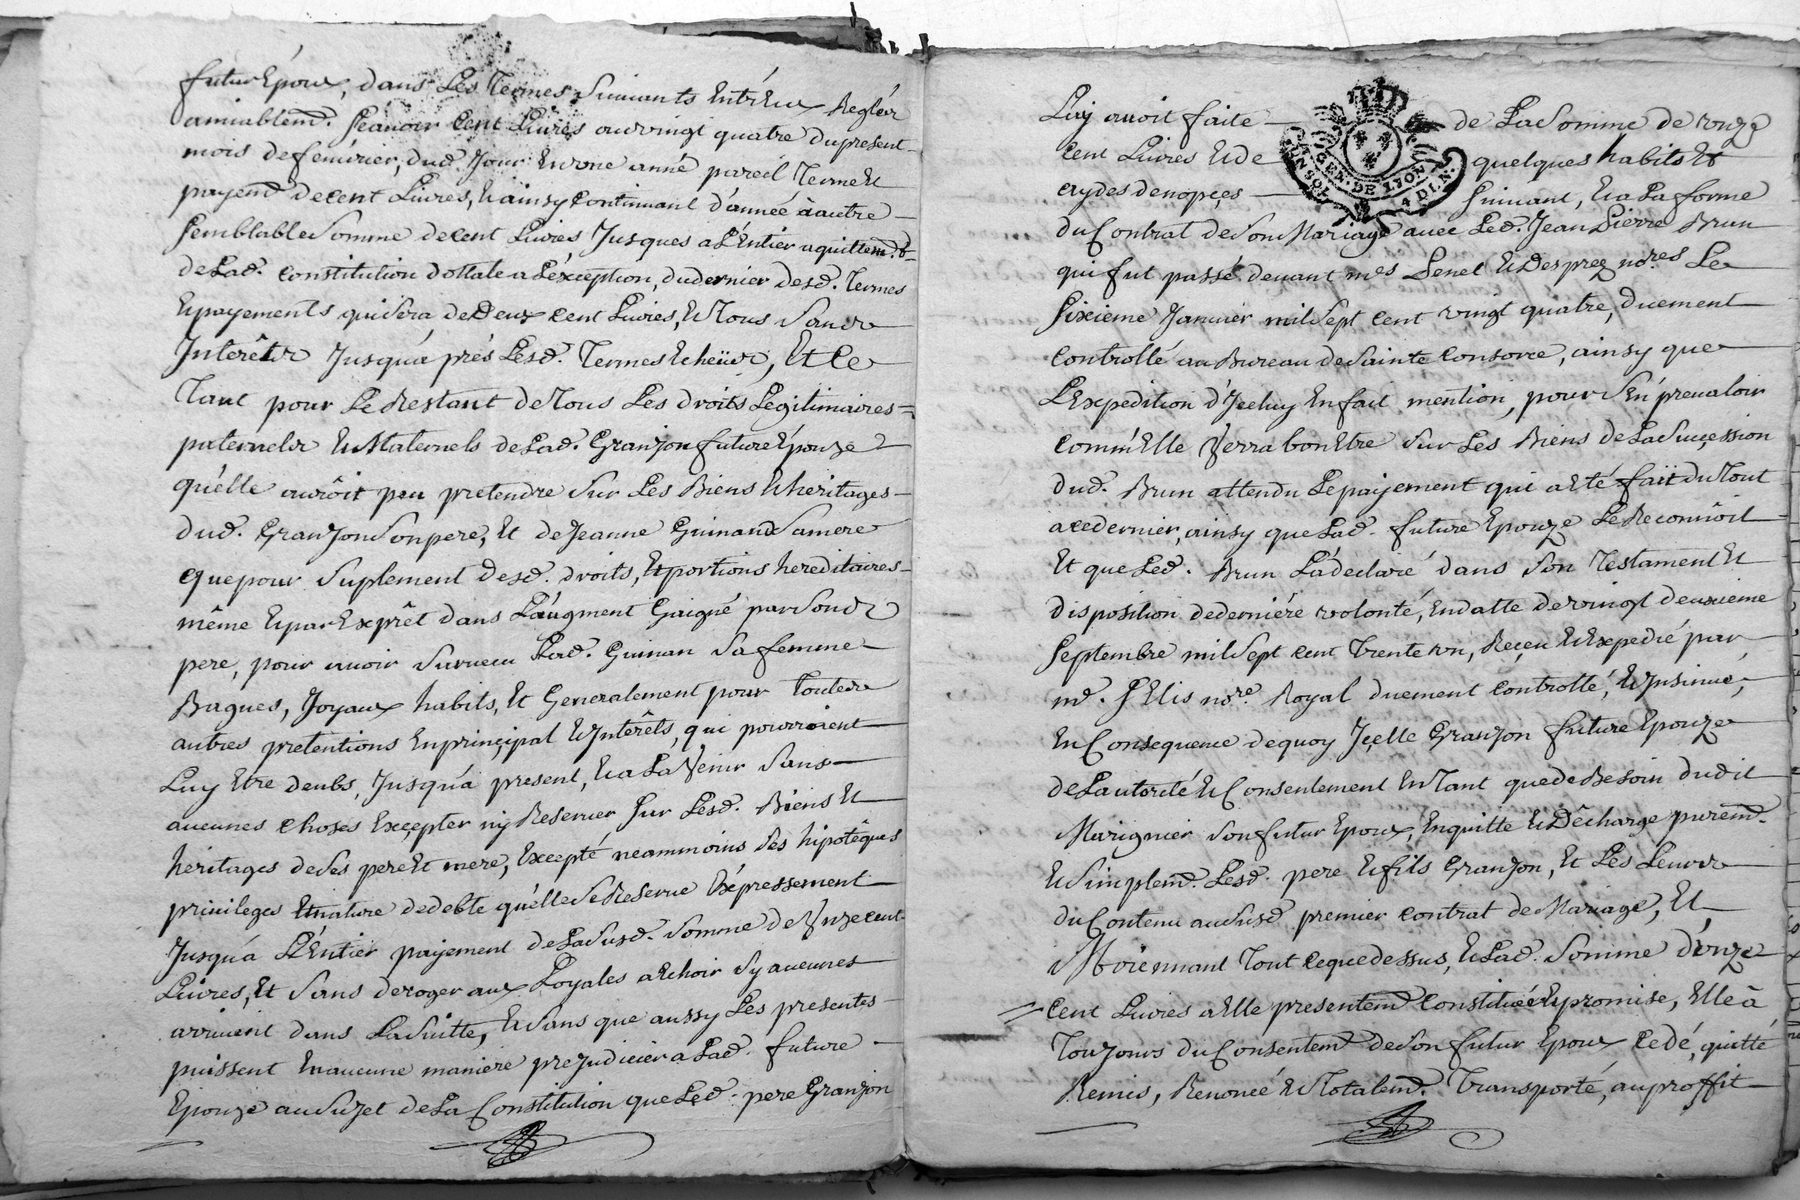 futur Epoux, dans Les Termes Suivants Entr'Eux Reglés
amiablemt. Sçavoir Cent Livres au vingt quatre du present
mois de fevrier, dud. Jour En une anné pareil Terme Et
payemt. de cent Livres, Et ainsy Continuant d'année à autre
Semblable Somme de cent Livres Jusques a L'Entier aquittemt.
de Lad. Constitution dottale a L'éxception, du dernier desd. Termes
Et payements qui Sera de Deux cent Livres, Et Tous Sans
Interêts Jusqu'a prés Lesd. Termes Echeüs, Et Ce
Tant pour Le Restant de Tous Les droits Legitimaires
paternels Et Maternels de Lad. Granjon future Epouze
qu'elle auroit peu pretendre Sur Les Biens Et heritages
dud. Granjon Son pere, Et de Jeanne Guinand Sa mere
que pour Suplement desd. droits, Et portions hereditaires
même Et par Exprêt dans L'augment Gaigné par Sond.
pere, pour avoir Survecu Lad. Guinan Sa femme
Bagues, Joyaux habits, Et Generalement pour Toutes
autres pretentions En principal Et Interêts, qui pourroient
Luy Etre deubs, Jusqu'a present, Et a L'avenir Sans
aucunes choses Excepter ny Reserver Sur Lesd. Biens Et
heritages de Ses pere Et mere, Excepté neammoins Ses hipotêques
privileges Et nature de debte qu'elle Se Reserve Expressement
Jusqu'a L'Entier payement de La Susd. Somme de Onze cent
Livres, Et Sans deroger aux Loyales a Echoir Sy aucunes
arrivent dans La Suitte, Et Sans que aussy Les presentes
puissent En aucune maniere prejudicier a Lad. future
Epouze au Sujet de La Constitution que Led. pere Granjon
Luy avoit faite de La Somme de onze
cent Livres Et de quelques habits Et
GEN. DE LYON
4 DEN.
Suivant, Et a La forme
du Contrat de Son Mariage avec Led. Jean Pierre Brun
qui fut passé devant mes Penel Et Desprez nores Le
Sixieme Janvier mil Sept cent vingt quatre, duement
Controllé au Bureau de Sainte Consorce, ainsy que
L'Expedition d'Jceluy En fait mention, pour S'En prevaloir
comm'Elle Verra bon Etre Sur Les Biens de La Succession
dud. Brun attendu Le payement qui a Eté fait du Tout
a ce dernier, ainsy que Lad. future Epouze Le Reconnoit
Et que Led. Brun L'a declaré dans Son Testament Et
disposition de derniére volonté, En datte de vingt deuxieme
Septembre mil Sept cent Trente un, Reçeu Et Expedié par
me. nore. Royal duement Controllé, Et Insinué,
En Consequence de quoy Jcelle Granjon future Epouze
de L'autorité Et Consentement En Tant que de Besoin dudit
Marignier Son futur Epoux, En quitte Et Dêcharge puremt.
Et Simplemt. Lesd. pere Et fils Granjon, Et Les Leurs
du Contenu au Susd. premier Contrat de Mariage, Et
Moiennant Tout ce que dessus, Et Lad. Somme d'onze
Cent Livres a Elle presentemt. Constituée Et promise, Elle à
Toujours du Consentemt. de Son futur Epoux Cedé, quitté
Remis, Renoncé Et Totalemt. Transporté, au proffit